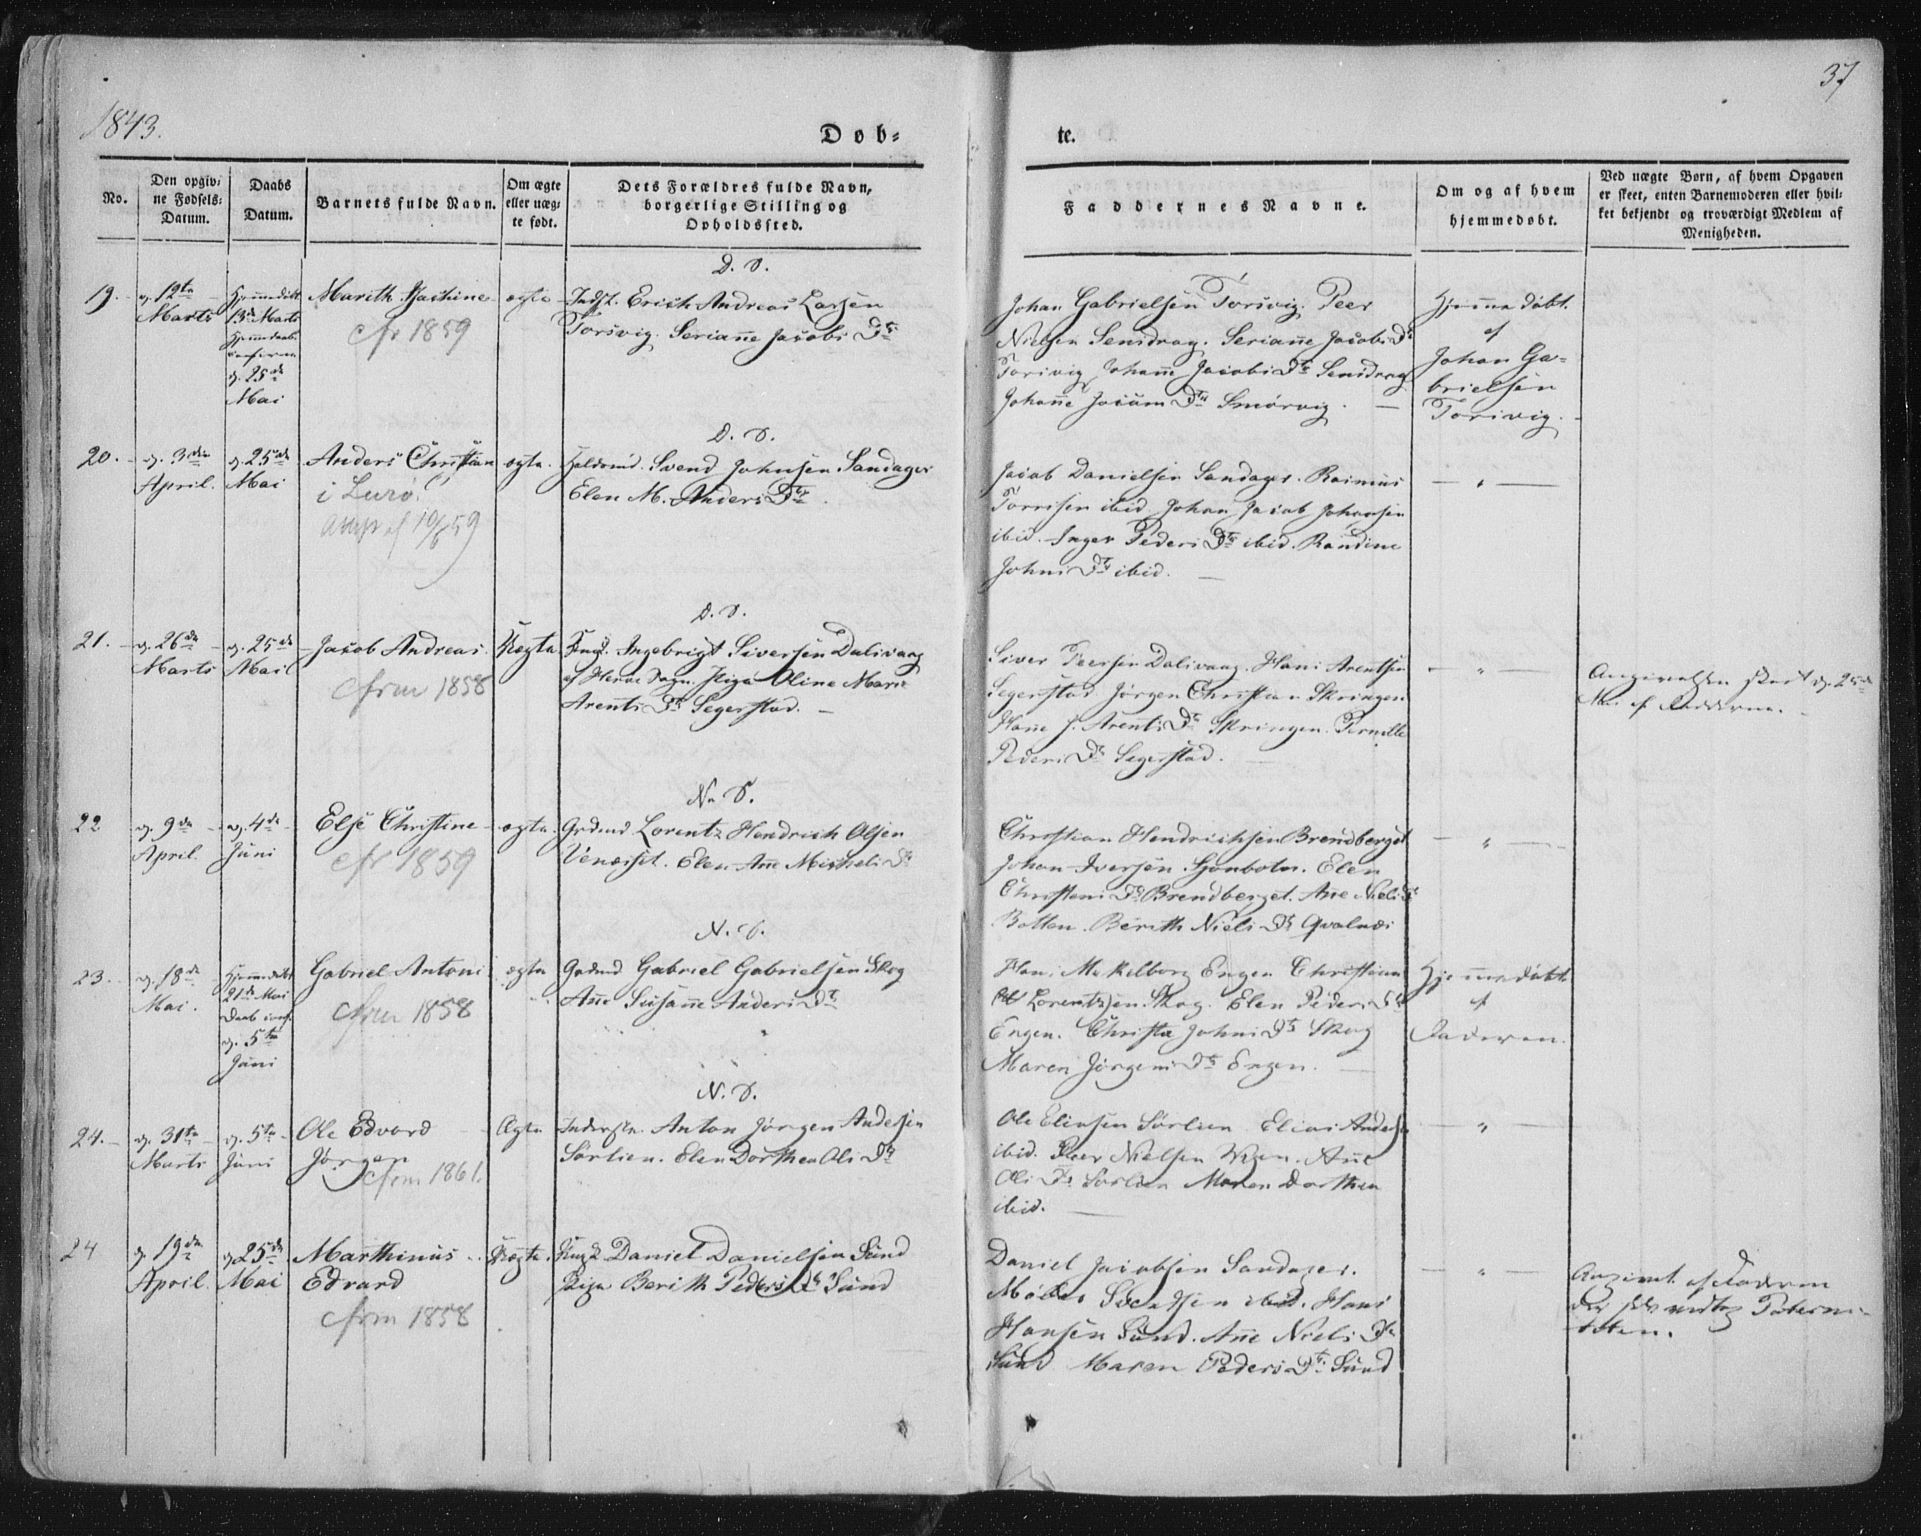 1843.
37
Døb-
te.
No.
Den opgiv-
ne Fødsels-
Datum.
Daabs
Datum.
Barnets fulde Navn.
Om ægte
eller uæg-
te født.
Dets Forældres fulde Navn,
borgerlige Stilling og
Opholdssted.
Faddernes Navne.
Om og af hvem
hjemmedøbt.
Ved uægte Børn, af hvem Opgaven
er skeet, enten Barnemoderen eller hvil-
ket bekjendt og troværdigt Medlem af
Menigheden.
D. S.
19.
d. 12te
Marts
Hjemmedøbt
13de Marts
d. 25de
Mai
Marith
cfr 1859
ægte
Indst. Erich Andreas Larsen
Torsvig. Seriane Jacobs Dtr
Johan Gabrielsen Torsvig. Peer
Nielsen Sensdrag. Seriane Jacobs Dr
Torsvig Johane Jacobs Dtr Sensdrag
Johane Dtr Smørvig.
Hjemmedøbt
af
Johan Ga-
brielsen
Torsvig.
D. S.
20.
d. 3die
April.
d. 25de
Mai
Anders Christian
i Lurø.
Attest af 10/6 59
ægte.
Svend Johnsen Sandager
Elen M. Anders Dtr.
Jacob Danielsen Sandager. Rasmus
Torrisen ibid. Johan Jacob Johansen
ibid. Inger Peders Dtr ibid. Randine
Johns Dtr ibid.
D. S.
21.
d. 26de
Marts
d. 25de
Mai
Jacob Andreas.
cfrm 1858
Uægte
Ungk. Ingebrigt Siversen Dalsvaag
af Herøe Sogn. Piga Oline Marie
Arents Dtr Segerstad.
Siver Peersen Dalsvaag. Hans Arentsen
Segerstad Jørgen Christian Skringen
Hane J. Arents Dtr Skringen. Pernille
Peders Dtr Segerstad.
Angivelsen skeet d. 25de
Mai af Faderen.
N. S.
22
d. 9de
April.
d. 4de
Juni
Else Christine
cfr 1859
ægte.
Grdmd Lorentz Hendrich Olsen
Venæset. Elen Ane Michels Dtr
Christian Hendrichsen Brendberget
Johan Iversen Sjonbotn. Elen
Christens Dr Brendberget. Ane Niels Dr
Botten. Berith Niels Dtr Qvalnæs
N. S.
23.
d. 18de
Mai.
Hjemmedøbt
21de Mai
Daab conf.
d. 5te
Juni
Gabriel Antoni
cfrm 1858
ægte
Grdmd Gabriel Gabrielsen Skog
Ane Susane Anders Dtr
Hans Mekelborg Engen Christian
Lorentzsen Skog. Elen Peders Dtr
Engen. Christa Johns Dtr Skog
Maren Jørgens Dtr Engen.
Hjemmedøbt
af
Faderen.
N. S.
24.
d. 31te
Marts
d. 5te
Juni
Ole Edvard
Jørgen
cfrm 1861.
Ægte
Inderste. Anton Jørgen Andersen
Sørlien. Elen Dorthea Ols Dtr
Ole Eliasen Sørlien Elias Andersen
ibid. Peer Nielsen Ane
Ols Dr Sørlien Maren Dorthea
ibid.
24
d. 19de
April.
d. 25de
Mai
Marthinus
Edvard
cfrm 1858
Uægte.
Ungk. Daniel Danielsen Sund
Piga Berith Peders Dtr Sund
Daniel Jacobsen Sandager.
Svendsen ibid. Hans
Hansen Sund. Ane Niels Dr
Sund Maren Peders Dtr. Sund
Angivet af Faderen